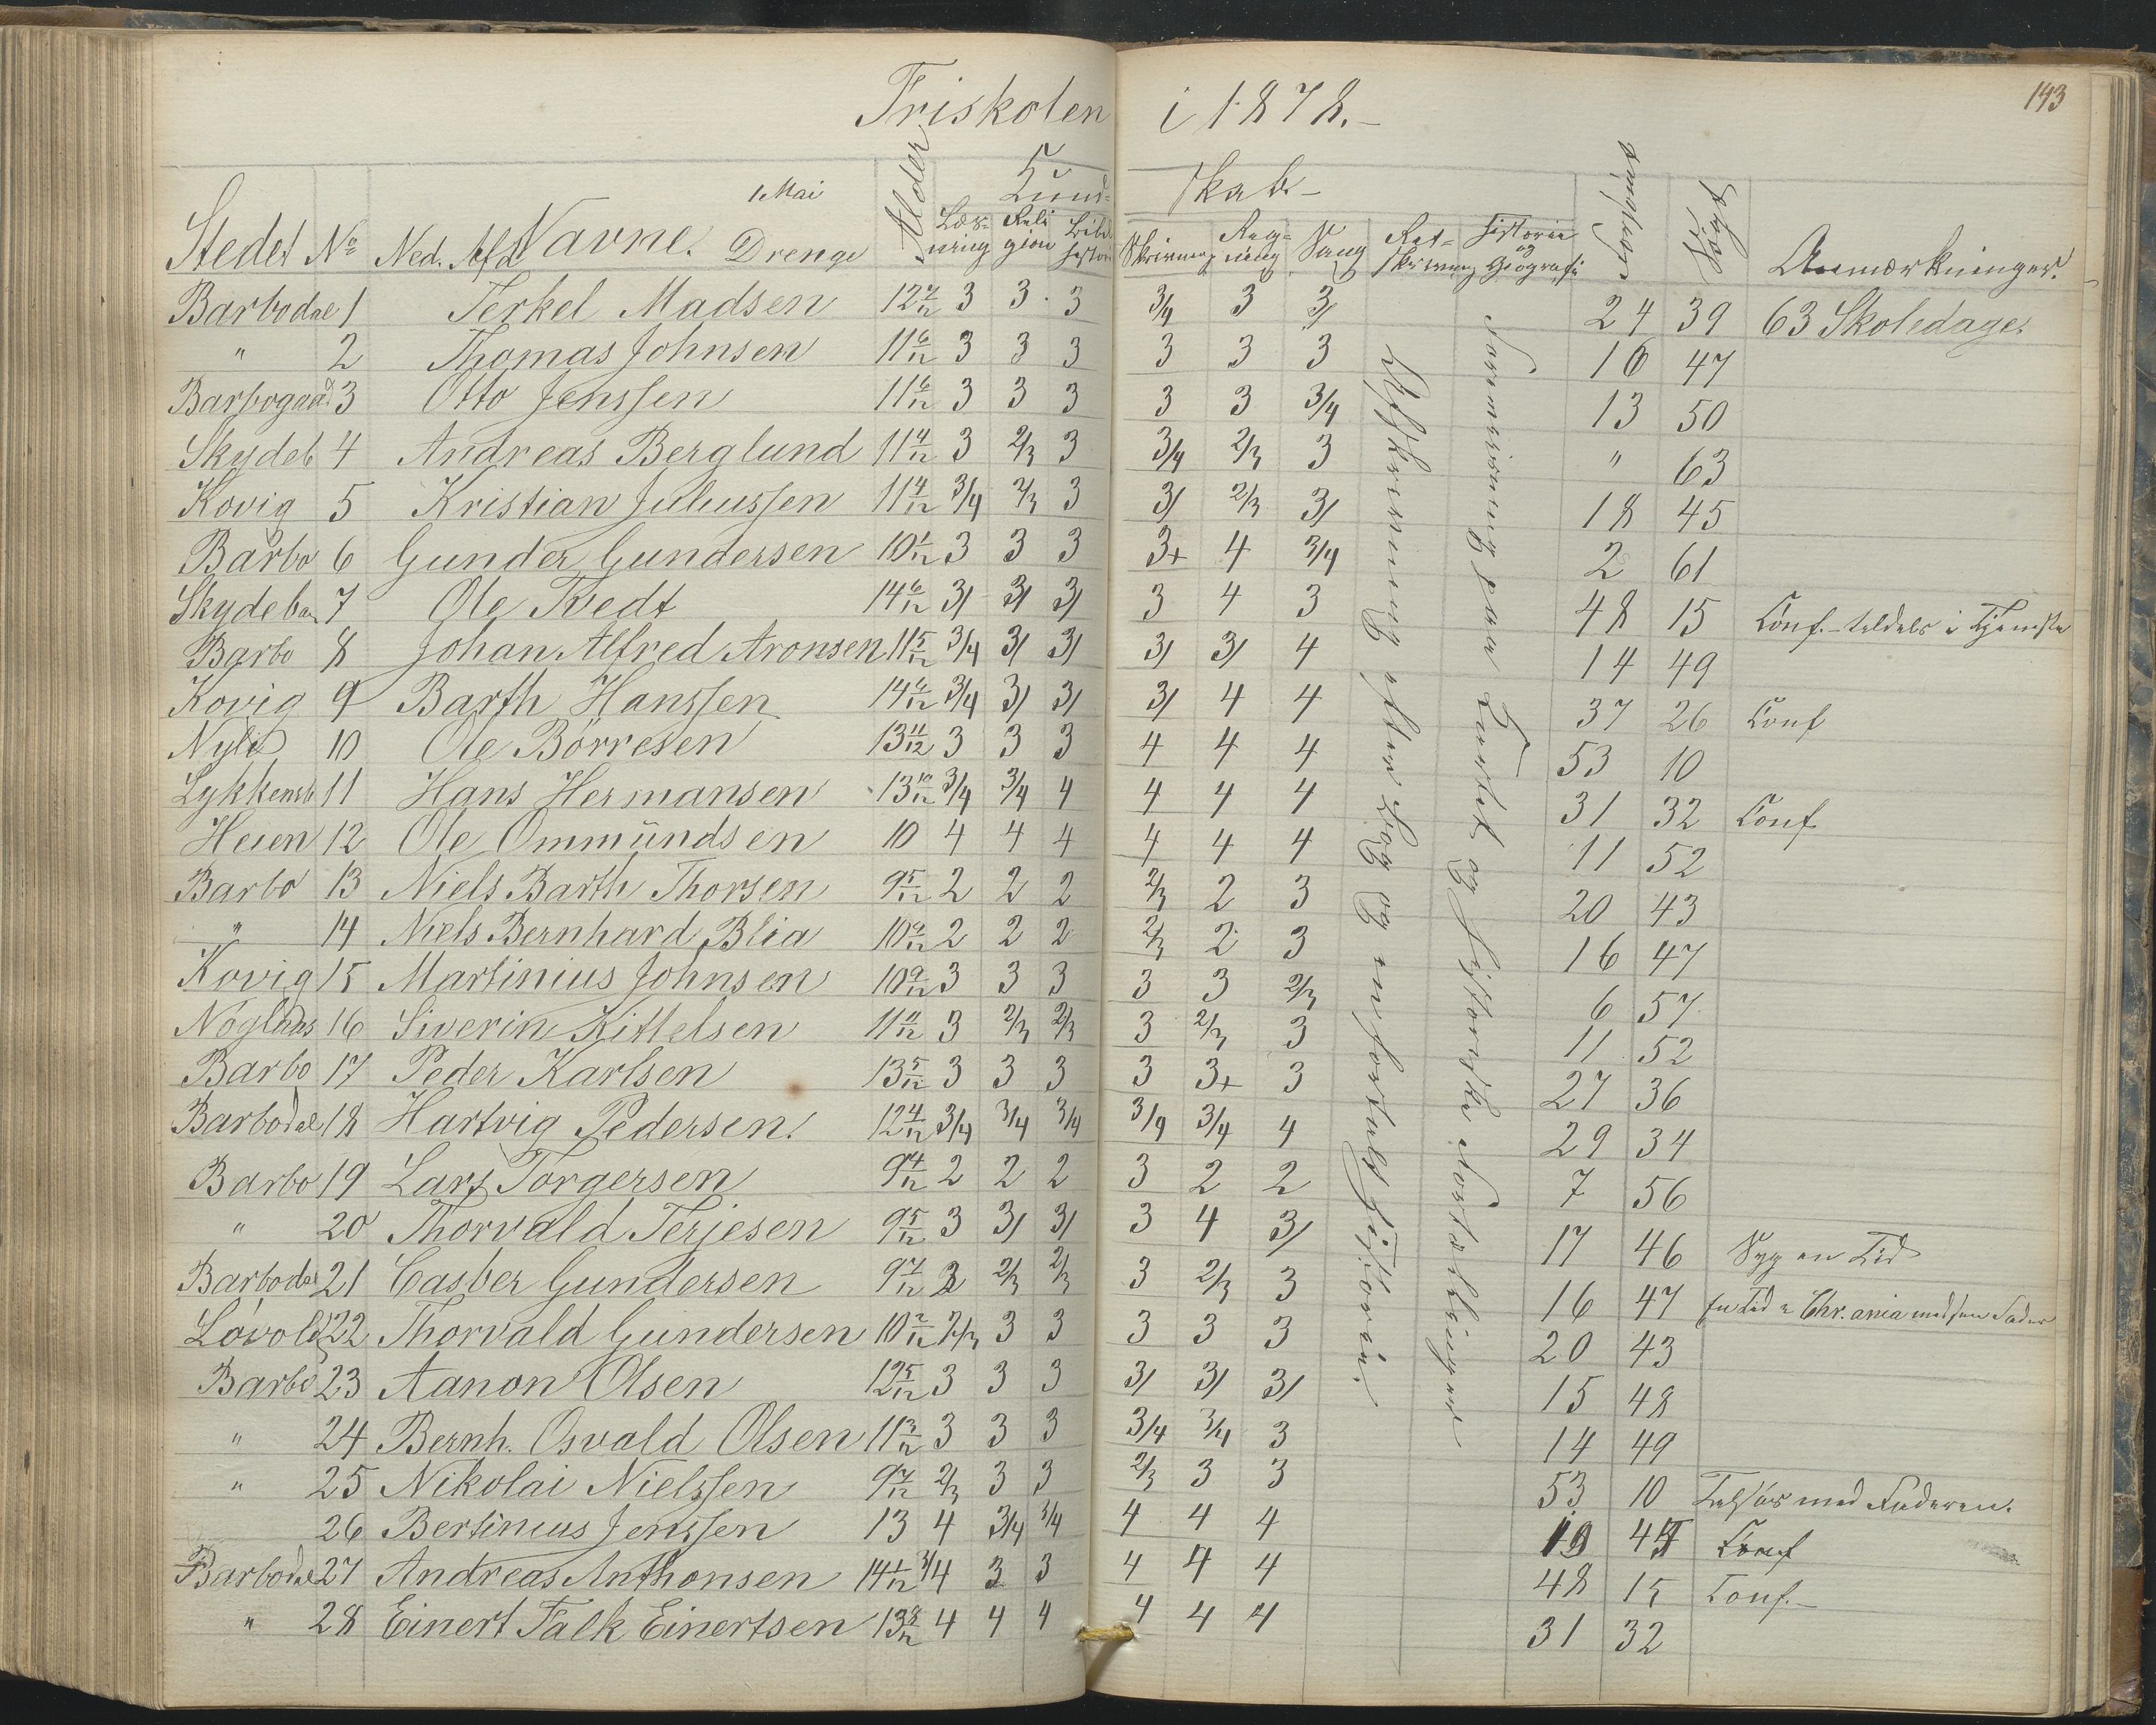 Friskolen i 1878.-
143
1 Mai
Kund- skab-
Stedet No Ned. Afd Navne. Drenge Alder Læs-ning Reli gion Bibl. histori Skrivning Reg-ning Sang Ret-skrivning Historie og Geografi Forsømt Søgt Anmærkninger.
Barbodal 1 Terkel Madsen 12 7/12 3 3 3 3/4 3 3/ 24 39 63 Skoledage.
" 2 Thomas Johnsen 11 6/12 3 3 3 3 3 3 16 47
Barbogaad 3 Otto Jenssen 11 6/12 3 3 3 3 3 3/4 13 50
Skydeb 4 Andreas Berglund 11 4/12 3 2/3 3 3/4 2/3 3 " 63
Kovig 5 Kristian Juliussen 11 4/12 3/4 2/3 3 3/ 2/3 3/ 18 45
Barbo 6 Gunder Gundersen 10 1/12 3 3 3 3+ 4 3/4 2 61
Skydeban 7 Ole Tvedt 14 6/12 3/ 3/ 3/ 3 4 3 48 15 Conf.- tildels i Tjeneste
Barbo 8 Johan Alfred Aronsen 11 5/12 3/4 3/ 3/ 3/ 3/ 4 14 49
Kovig 9 Barth Hanssen 14 6/12 3/4 3/ 3/ 3/ 4 4 37 26 Conf
Nylid 10 Ole Börresen 13 11/12 3 3 3 4 4 4 53 10
Lykkensb 11 Hans Hermansen 13 10/12 3/4 3/4 4 4 4 4 31 32 Conf
Heien 12 Ole Ommündsen 10 4 4 4 4 4 4 11 52
Barbo 13 Niels Barth Thorsen 9 5/12 2 2 2 2/3 2 3 20 43
" 14 Niels Bernhard Blia 10 9/12 2 2 2 2/3 2 3 16 47
Kovig 15 Martinius Johnsen 10 9/12 3 3 3 3 3 2/3 6 57
Nöglaas 16 Siverin Kittelsen 11 11/12 3 2/3 2/3 3 2/3 3 11 52
Barbo 17 Peder Karlsen 13 5/12 3 3 3 3 3+ 3 27 36
Barbodal 18 Hartvig Pedersen. 12 4/12 3/4 3/4 3/4 3/4 3/4 4 29 34
Barbo 19 Lars Torgersen 9 4/12 2 2 2 3 2 2 7 56
" 20 Thorvald Terjesen 9 5/12 3 3/ 3/ 3 4 3/ 17 46 Syg en Tid
Barbodal 21 Casber Gundersen 9 7/12 3 2/3 2/3 3 2/3 3 16 47 En Tid i Chr.ania med sin Fader
Lövold 22 Thorvald Gundersen 10 2/12 2/3 3 3 3 3 3 20 43
Barbo 23 Aanon Olsen 12 5/12 3 3 3 3/ 3/ 3/ 15 48
" 24 Bernh. Osvald Olsen 11 3/12 3 3 3 3/4 3/4 3 14 49
" 25 Nikolai Nielssen 9 7/12 2/3 3 3 2/3 3 3 53 10 Tilsös med Faderen.
26 Bertinius Jenssen 13 4 3/4 3/4 4 4 4 19 44 Conf
Barbodal 27 Andreas Anthonsen 14 1/12 3/4 3 3 4 4 4 48 15 Conf.-
" 28 Einert Falk Einertsen 13 8/12 4 4 4 4 4 4 31 32
Retskrivning efter Bog og en fortalt Historie.
Formvisning paa Kartet og historiske Fortællinger